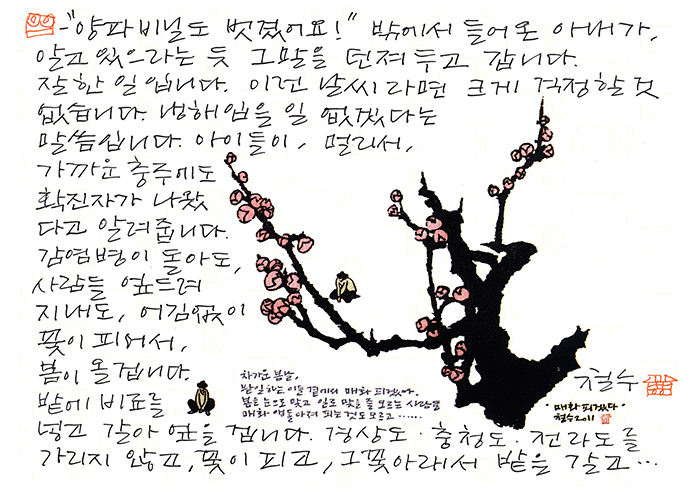 -"양파비닐도 벗겼어요!" 밖에서 들어온 아내가,
알고 있으라는 듯 그말을 던져두고 갑니다.
잘한 일입니다. 이런 날씨라면 크게 걱정할 것
없습니다. 냉해입을 일 없겠다는
말씀입니다. 아이들이, 멀리서,
가까운 충주에도
확진자가 나왔
다고 알려줍니다.
감염병이 돌아도,
사람들 엎드려
지내도, 어김없이
꽃이 피어서,
봄이 올겁니다.
밭에 비료를
넣고 갈아 엎을 겁니다. 경상도·충청도·전라도를
가리지 않고, 꽃이 피고, 그꽃아래서 밭을 갈고…
차가운 봄날,
밭일하는 이들 곁에서 매화 피겠다.
봄을 눈으로 맞고 일로 맞을 줄 모르는 사람들
매화 앵돌아져 피는 것도 모르고……
철수
·매화 피겠다·
철수2011